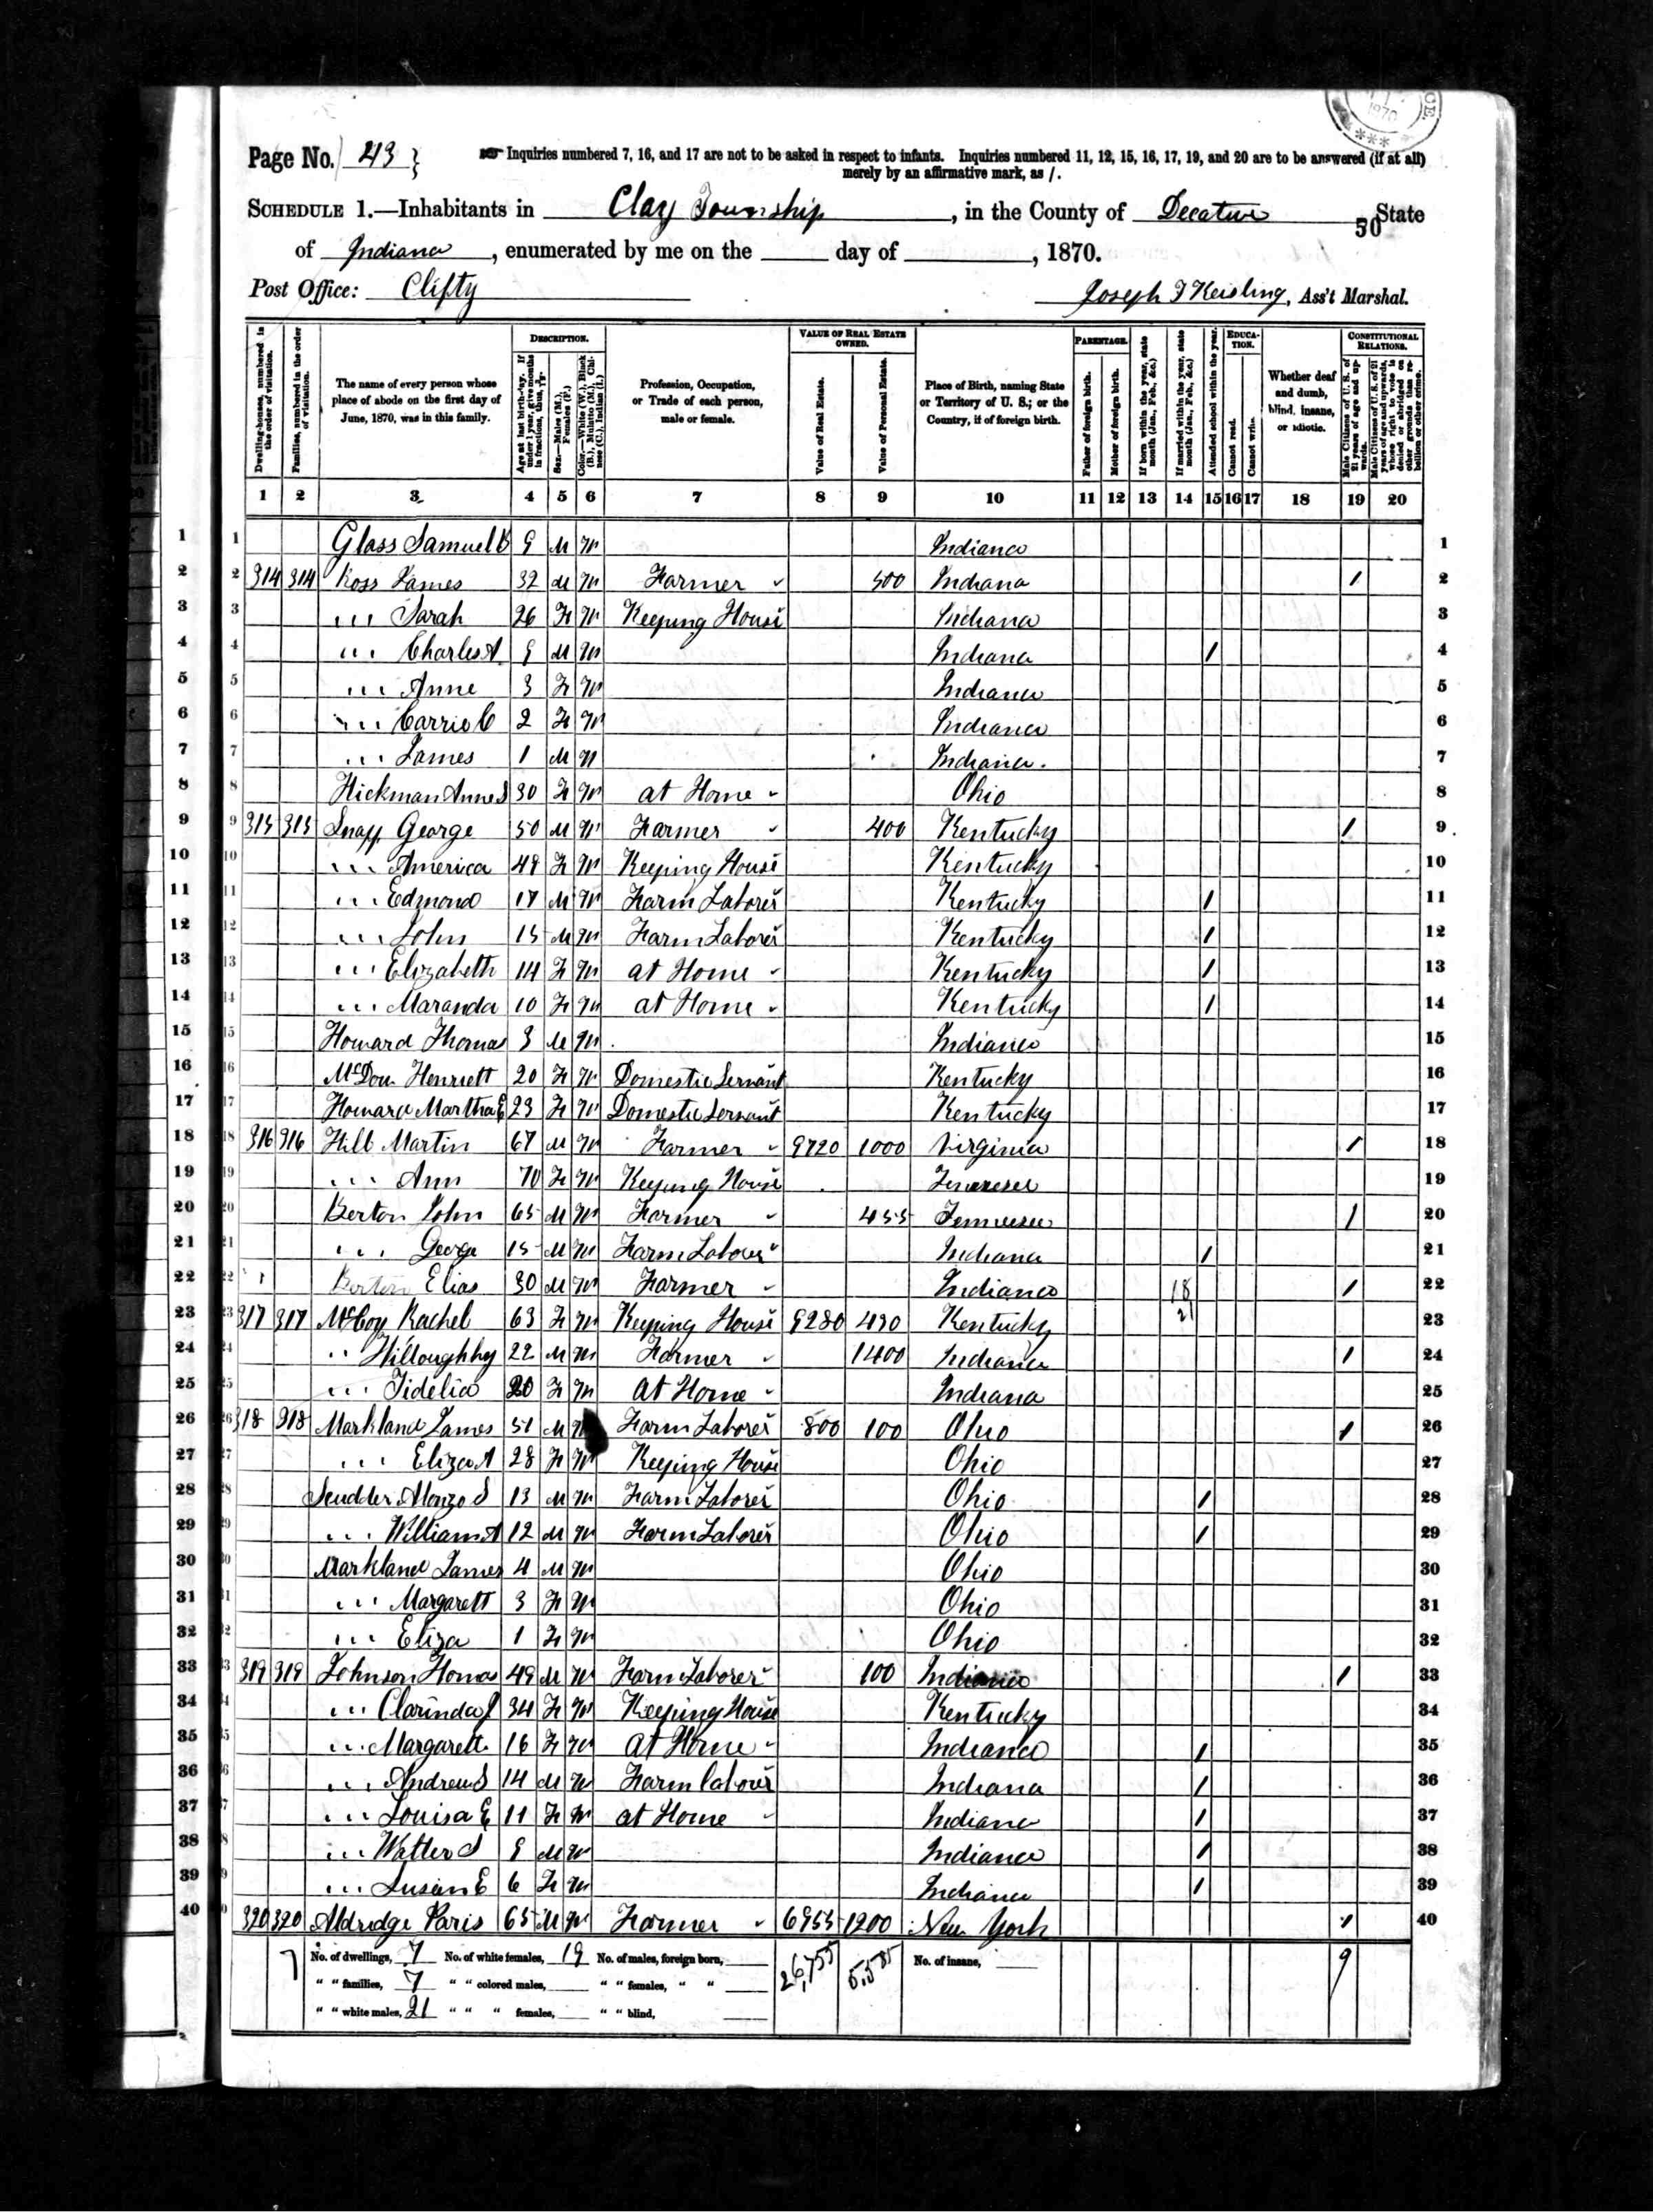 Page No. 43
Inquiries numbered 7, 16, and 17 are not to be asked in respect to infants. Inquiries numbered 11, 12, 15, 16, 17, 19, and 20 are to be answered (if at all)
merely by an affirmative mark, as /.
Schedule 1.—Inhabitants in Clay Township, in the County of Decatur State
50
of Indiana, enumerated by me on the day of , 1870.
Post Office: Clifty
Joseph F Keisling, Ass't Marshal.
Description. Value of Real Estate Owned. Parentage. Education. Constitutional Relations.
Dwelling-houses, numbered in the order of visitation.
Families, numbered in the order of visitation.
The name of every person whose place of abode on the first day of June, 1870, was in this family.
Age at last birth-day. If under 1 year, give months in fractions, thus,
Sex.—Males (M.), Females (F.)
Color.—White (W.), Black (B.), Mulatto (M.), Chinese (C.), Indian (I.)
Profession, Occupation, or Trade of each person, male or female.
Value of Real Estate.
Value of Personal Estate.
Place of Birth, naming State or Territory of U. S.; or the Country, if of foreign birth.
Father of foreign birth.
Mother of foreign birth.
If born within the year, state month (Jan., Feb., &c.)
If married within the year, state month (Jan., Feb., &c.)
Attended school within the year.
Cannot read.
Cannot write.
Whether deaf and dumb, blind, insane, or idiotic.
Male Citizens of U. S. of 21 years of age and upwards.
Male Citizens of U. S. of 21 years of age and upwards, whose right to vote is denied or abridged on other grounds than rebellion or other crime.
1 2 3 4 5 6 7 8 9 10 11 12 13 14 15 16 17 18 19 20
1 Glass Samuel 9 M W Indiana 1
2 314 314 Ross James 32 M W Farmer 500 Indiana / 2
3 ... Sarah 26 F W Keeping House Indiana 3
4 ... Charles A 9 M W Indiana / 4
5 ... Anne 3 F W Indiana 5
6 ... Carrie C 2 F W Indiana 6
7 ... James 1 M W Indiana. 7
8 Hickman Anne S 30 F W at Home Ohio 8
9 315 315 Snapp George 50 M W Farmer 400 Kentucky / 9
10 ... America 48 F W Keeping House Kentucky 10
11 ... Edmond 17 M W Farm Laborer Kentucky / 11
12 ... John 15 M W Farm Laborer Kentucky / 12
13 ... Elizabeth 14 F W at Home Kentucky / 13
14 ... Maranda 10 F W at Home Kentucky / 14
15 Howard Thomas 3 M W Indiana 15
16 Henriett 20 F W Domestic Servant Kentucky 16
17 Howard Martha E 23 F W Domestic Servant Kentucky 17
18 316 316 Hill Martin 67 M W Farmer 9720 1000 Virginia / 18
19 ... Ann 70 F W Keeping House Tennessee 19
20 Berton John 65 M W Farmer 455 Tennessee / 20
21 ... George 15 M W Farm Laborer Indiana / 21
22 Berton Elias 30 M W Farmer Indiana / 22
23 317 317 McCoy Rachel 63 F W Keeping House 9280 430 Kentucky 23
24 ... Willoughby 22 M W Farmer 1400 Indiana / 24
25 ... Fidelia 20 F W At Home Indiana 25
26 318 318 Markland James 51 M W Farm Laborer 800 100 Ohio / 26
27 ... Eliza A 28 F W Keeping House Ohio 27
28 Scudder Alonzo S 13 M W Farm Laborer Ohio / 28
29 ... William A 12 M W Farm Laborer Ohio / 29
30 Markland James 4 M W Ohio 30
31 ... Margarett 3 F W Ohio 31
32 ... Eliza 1 F W Ohio 32
33 319 319 Johnson Thomas 49 M W Farm Laborer 100 Indiana / 33
34 ... Clarinda J 34 F W Keeping House Kentucky 34
35 ... Margarett 16 F W At Home Indiana / 35
36 ... Andrew S 14 M W Farm Laborer Indiana / 36
37 ... Louisa E 11 F W at Home Indiana / 37
38 ... Walter S 9 M W Indiana / 38
39 ... Susan E 6 F W Indiana / 39
40 320 320 Aldridge Paris 65 M W Farmer 6955 1200 New York / 40
No. of dwellings, 7 No. of white females, 19 No. of males, foreign born, 26,755 No. of insane, 9
" " families, 7 " " colored males, " " females, " "
" " white males, 21 " " " females, " " blind,